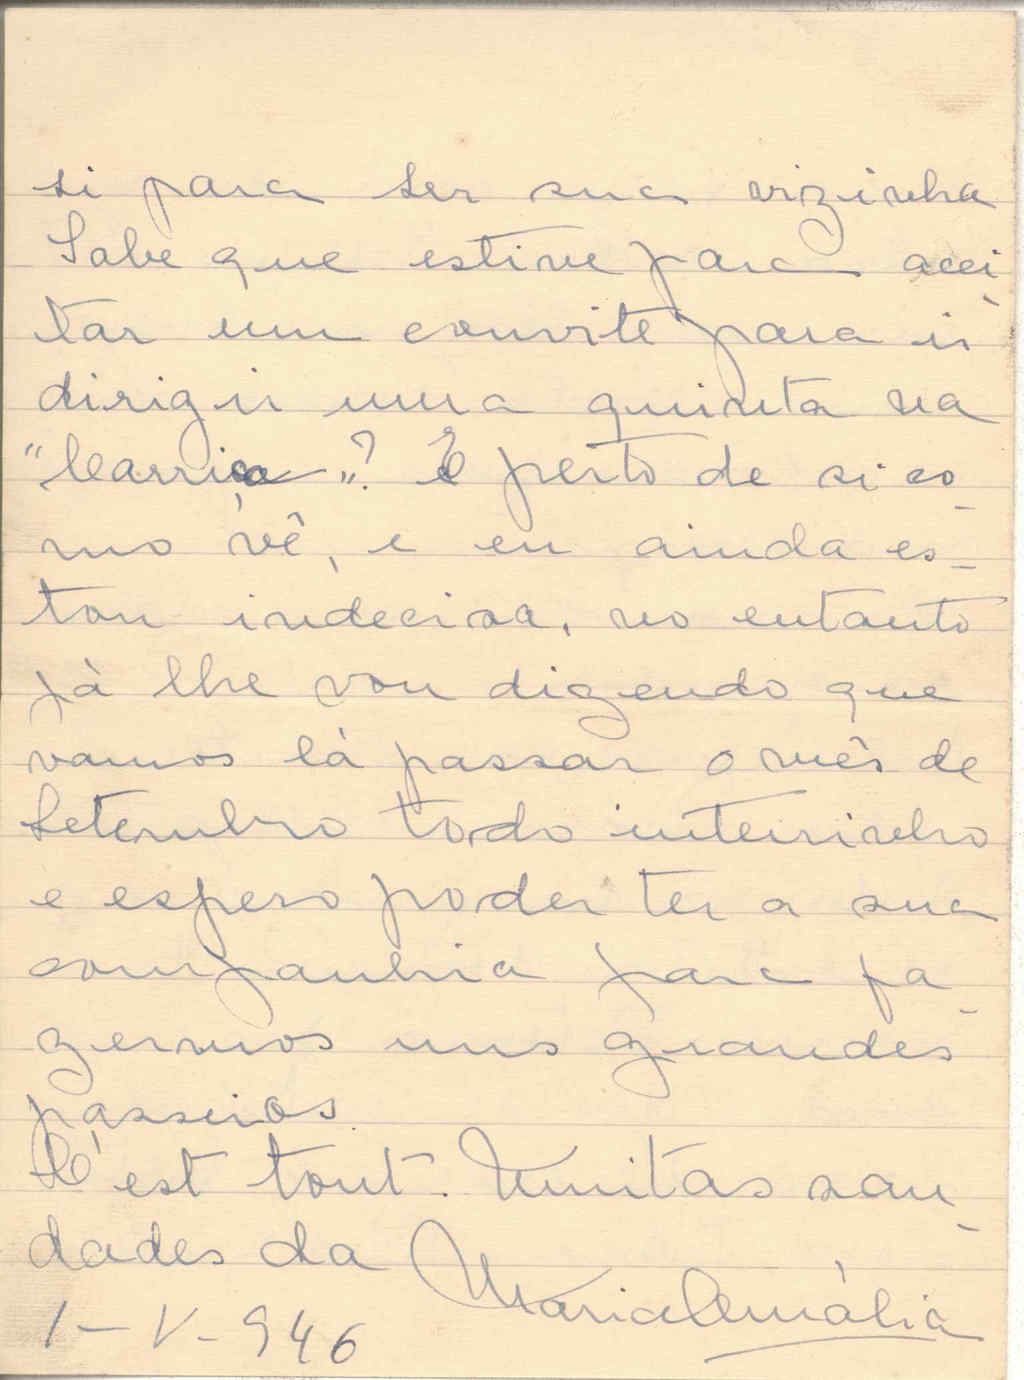 si para ser sua vizinha
Sabe que estive para acei-
tar um convite para ir
dirigir uma quinta na
"Carriça"? É perto de si co-
mo vê, e eu ainda es-
tou indecisa, no entanto
já lhe vou dizendo que
vamos lá passar o mês de
Setembro todo inteirinho
e espero poder ter a sua
companhia para fa-
zermos uns grandes
passeios.
C'est tout. Muitas sau-
dades da Maria Amália
1-V-946